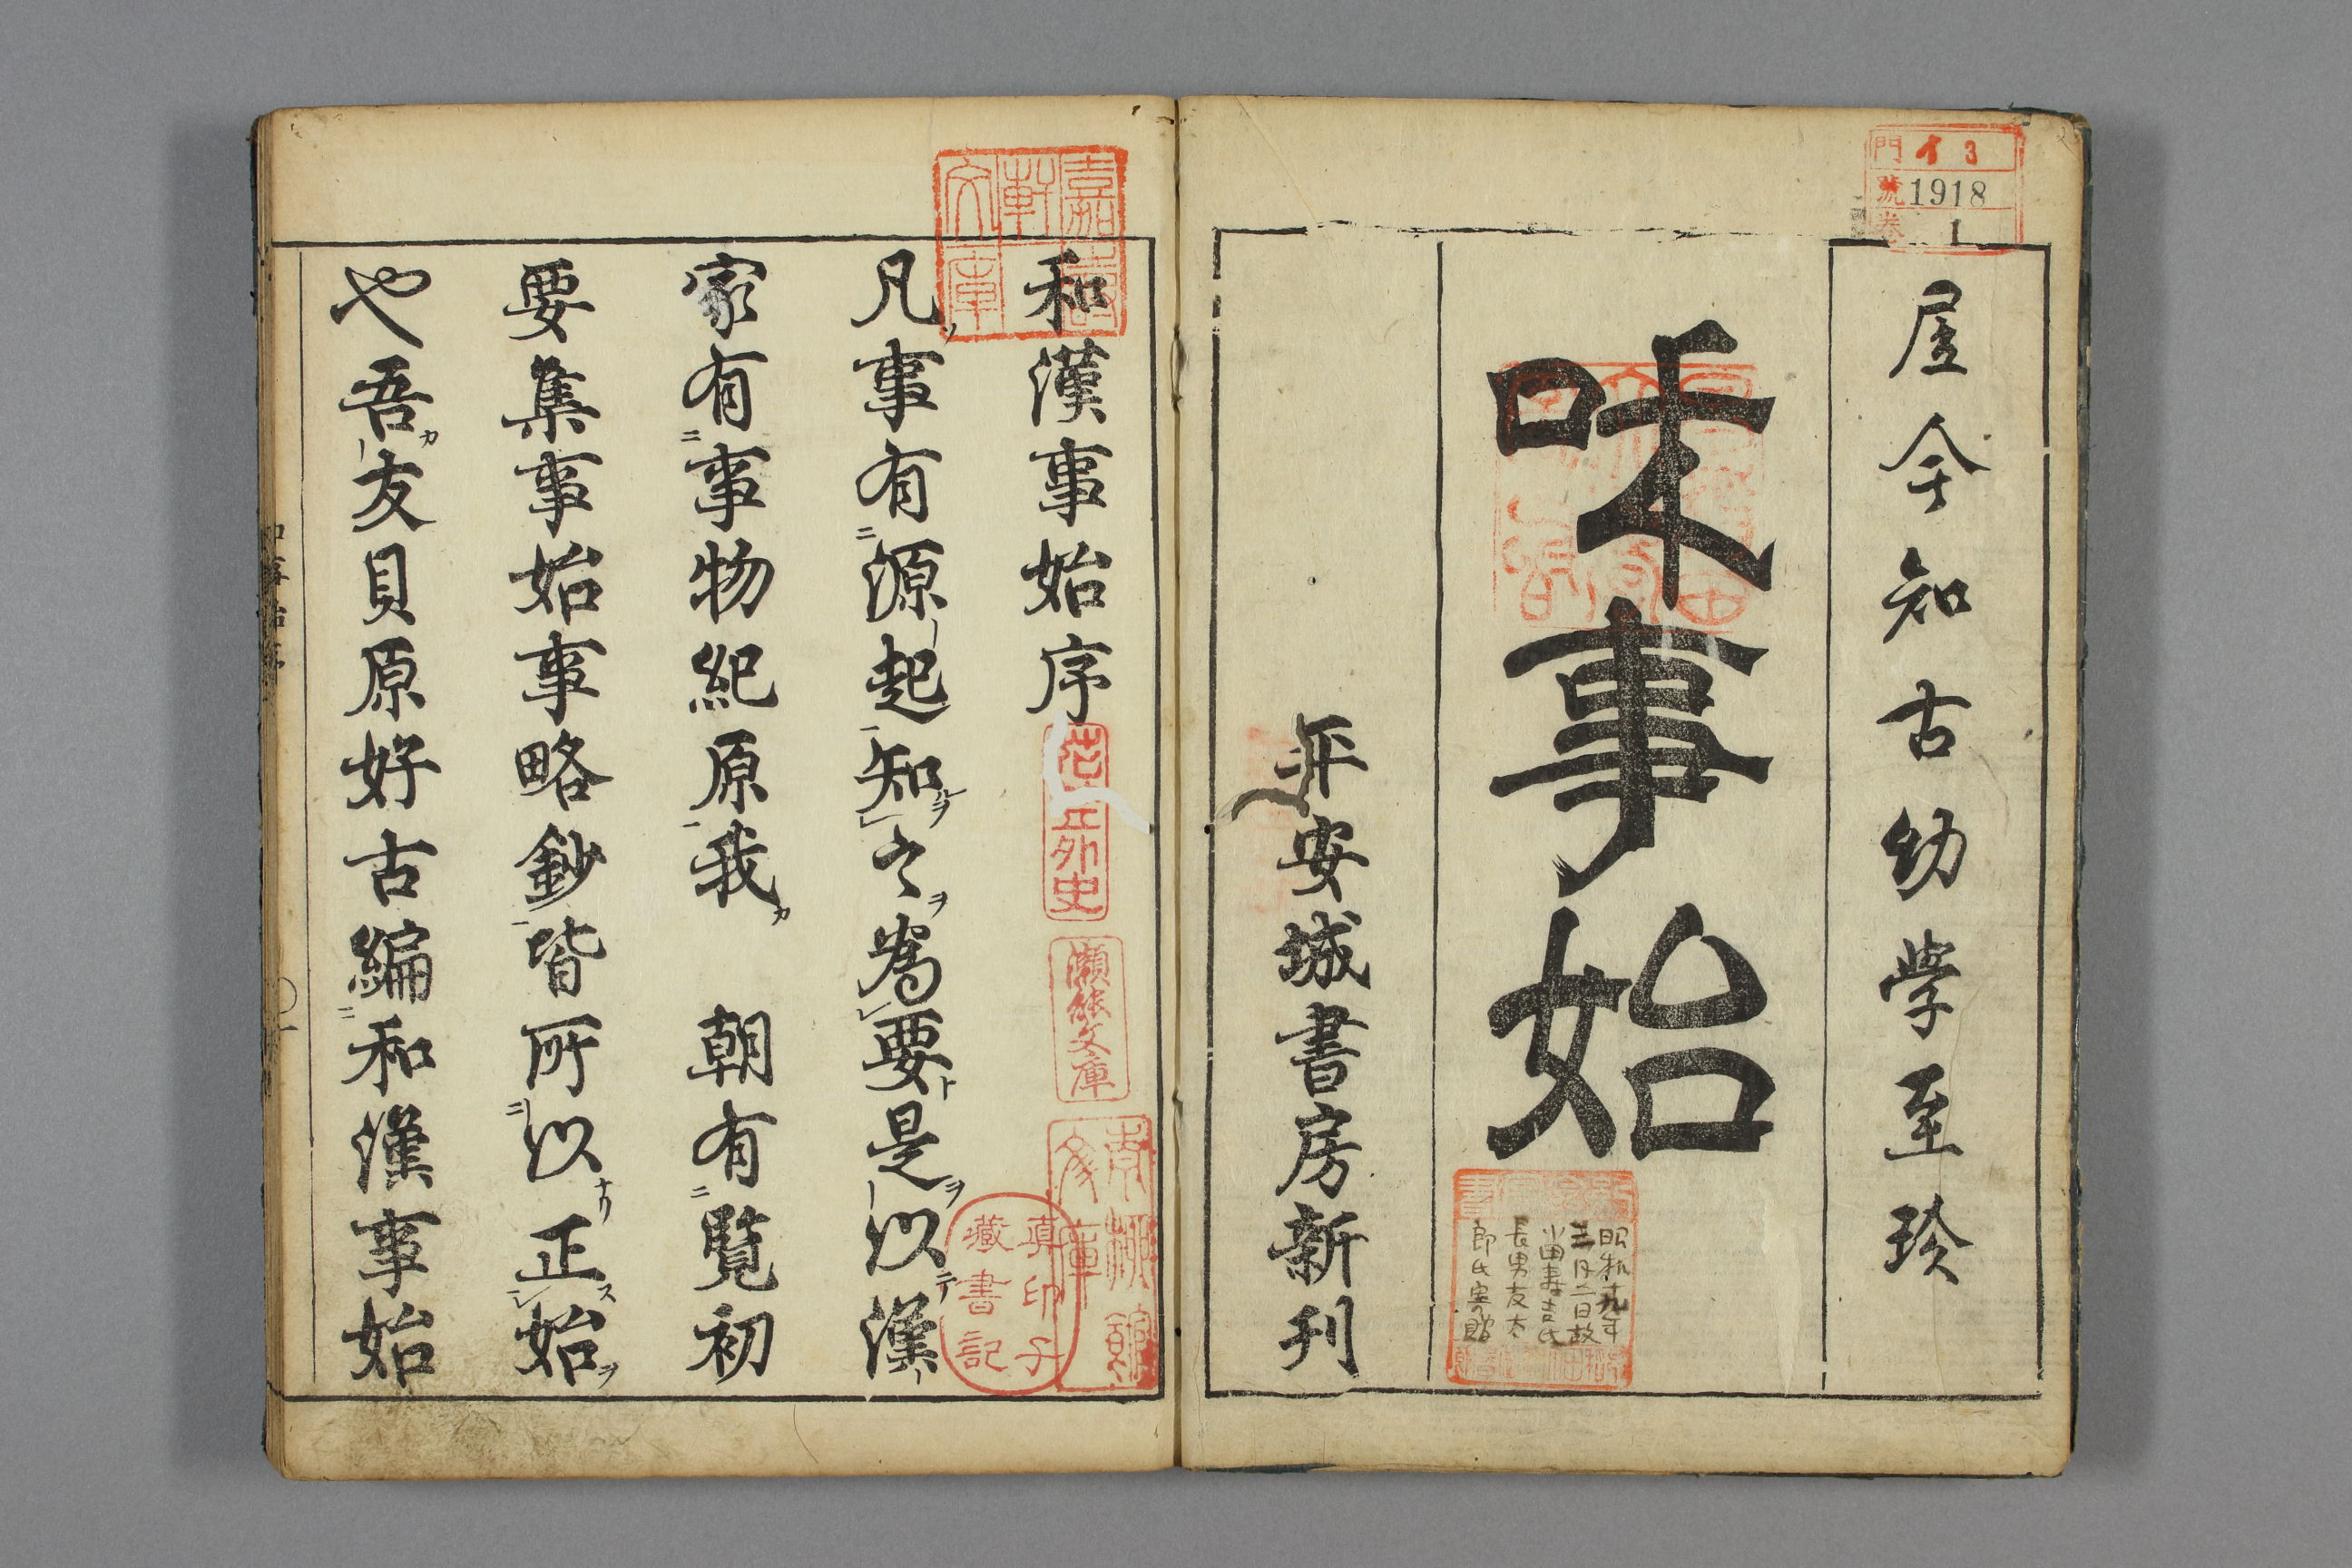 門 イ 3
號 1918
卷 1
居今知古幼学至珍
咊事始
昭和十九年
三月二日故
小田寿吉氏
長男友太
郎氏寄贈
平安城書房新刊
和漢事始序
凡事有源起知之為要是以漢
家有事物紀原我 朝有覧初
要集事始事略鈔皆所以正始
也吾友貝原好古編和漢事始
外史
文庫
真印子
蔵書記